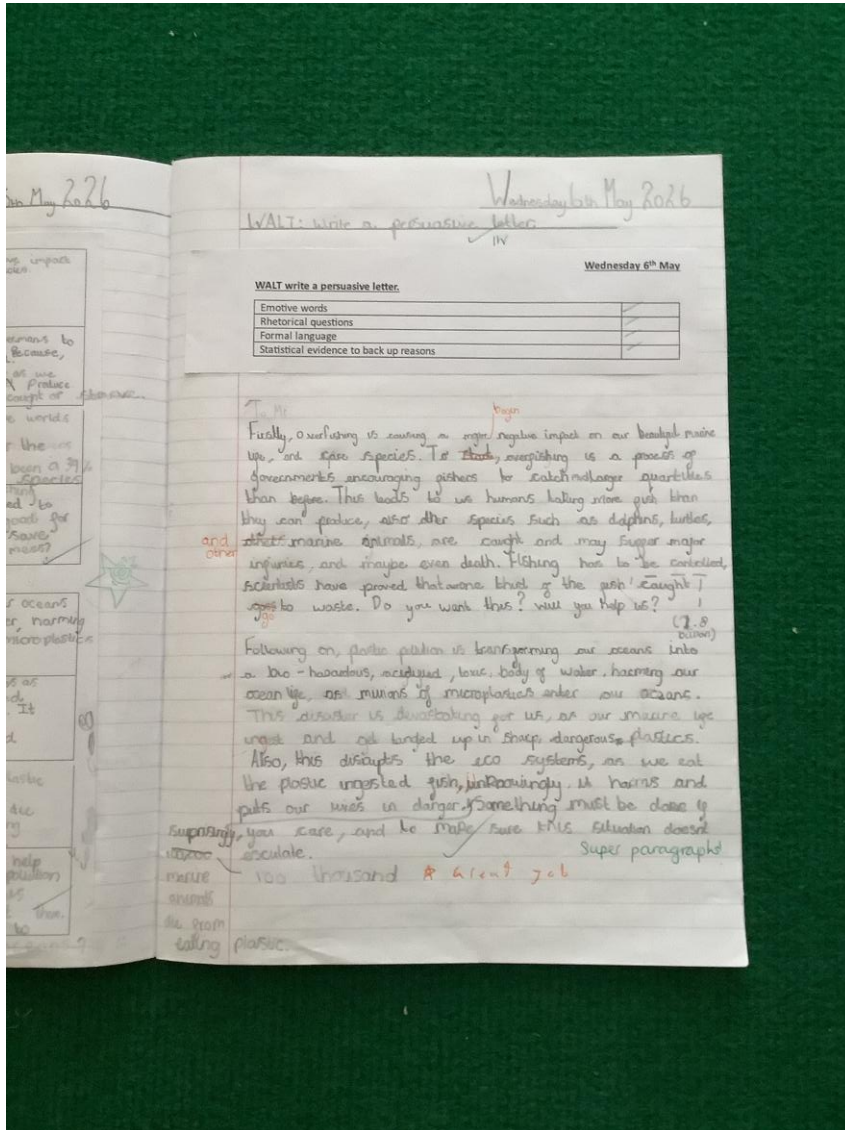 5th May 2026
ve impact
emans to
Because,
as we
Produce
caught or
e worlds
r the
been a 39%
species
ed to
goods for
save
r oceans
er, harming
microplastic
ys as
It
lastic
help
pollution
Wednesday 6th May 2026
WALT: Write a persuasive letter
Wednesday 6th May
WALT write a persuasive letter.
Emotive words
Rhetorical questions
Formal language
Statistical evidence to back up reasons
To Mr
begin
Firstly, Overfishing is causing a negative impact on our beautiful marine
life, and species. To start, overfishing is a process of
governments encouraging fishers to catch larger quantities
than before. This leads to us humans taking more fish than
they can produce, also other species such as dolphins, turtles,
and
other
marine animals, are caught and may suffer major
injuries, and maybe even death. Fishing has to be controlled,
scientists have proved that one third of the fish caught
goes to waste. Do you want this? Will you help us?
go
(7.8
billion)
Following on, plastic pollution is transforming our oceans into
a bio-hazardous, acidified, toxic, body of water, harming our
ocean life, as millions of microplastics enter our oceans.
This disaster is devastating for us, as our marine life
ingest and get tangled up in sharp, dangerous plastics.
Also, this disrupts the eco systems, as we eat
the plastic ingested fish, unknowingly. It harms and
puts our lives in danger. Something must be done if
you care, and to make sure this situation doesnt
esculate.
Suprisingly,
100,000
marine
animals
die from
eating plastic.
100 thousand
Great job
Super paragraphs!